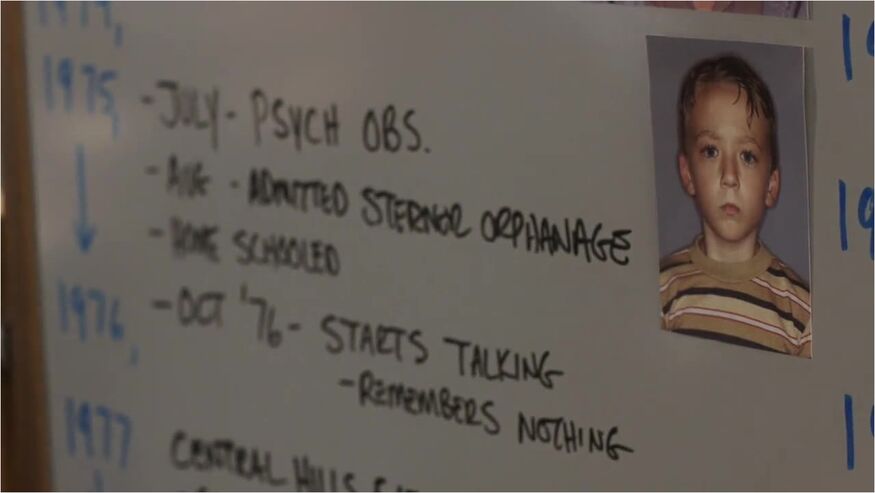 1974,
1975,
- JULY - PSYCH OBS.
- AUG - ADMITTED STERNOR ORPHANAGE
- HOME SCHOOLED
1976,
- OCT '76 - STARTS TALKING
- REMEMBERS NOTHING
1977
CENTRAL HILLS